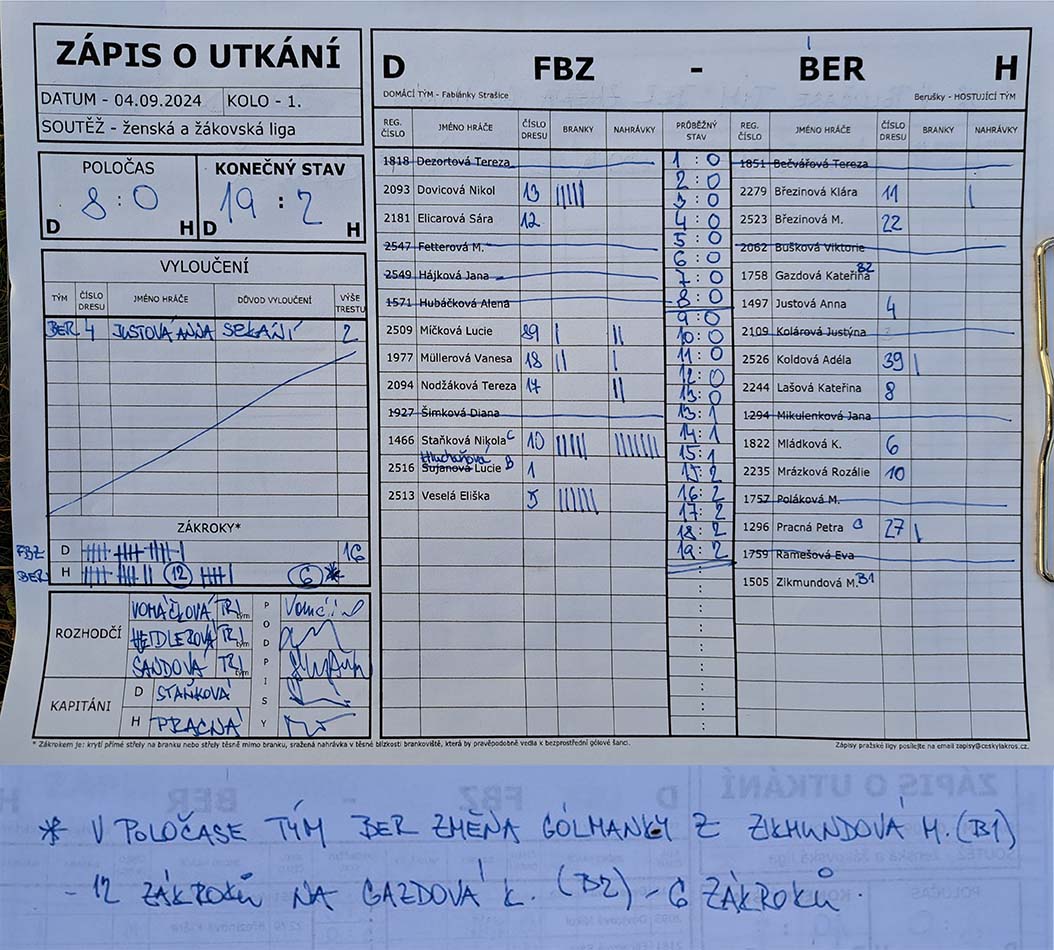 ZÁPIS O UTKÁNÍ
DATUM - 04.09.2024 KOLO - 1.
SOUTĚŽ - ženská a žákovská liga
D FBZ - BER H
DOMÁCÍ TÝM - Fabiánky Strašice Berušky - HOSTUJÍCÍ TÝM
POLOČAS KONEČNÝ STAV
8 : 0 19 : 2
D H D H
VYLOUČENÍ
TÝM ČÍSLO DRESU JMÉNO HRÁČE DŮVOD VYLOUČENÍ VÝŠE TRESTU
BER 4 JUSTOVÁ ANNA SEKÁNÍ 2
ZÁKROKY*
FBZ D 16
BER H 12 6 *
ROZHODČÍ
VOMÁČLOVÁ TRI tým
HEIDLEROVÁ TRI tým
SANDOVÁ TRI tým
KAPITÁNI
D STAŇKOVÁ
H PRACNÁ
PODPISY
REG. ČÍSLO JMÉNO HRÁČE ČÍSLO DRESU BRANKY NAHRÁVKY
1818 Dezortová Tereza
2093 Dovicová Nikol 13 |||||
2181 Elicarová Sára 12
2547 Fetterová M.
2549 Hájková Jana
1571 Hubáčková Alena
2509 Míčková Lucie 89 | ||
1977 Müllerová Vanesa 18 || |
2094 Nodžáková Tereza 17 ||
1927 Šimková Diana
1466 Staňková Nikola C 10
Hluchaňová
2516 Šujanová Lucie B 1
2513 Veselá Eliška 5
PRŮBĚŽNÝ STAV
1 : 0
2 : 0
3 : 0
4 : 0
5 : 0
6 : 0
7 : 0
8 : 0
9 : 0
10 : 0
11 : 0
12 : 0
13 : 0
13 : 1
14 : 1
15 : 1
15 : 2
16 : 2
17 : 2
18 : 2
19 : 2
REG. ČÍSLO JMÉNO HRÁČE ČÍSLO DRESU BRANKY NAHRÁVKY
1851 Bečvářová Tereza
2279 Březinová Klára 11 |
2523 Březinová M. 22
2062 Bušková Viktorie
1758 Gazdová Kateřina B2
1497 Justová Anna 4
2109 Kolárová Justýna
2526 Koldová Adéla 39 |
2244 Lašová Kateřina 8
1294 Mikulenková Jana
1822 Mládková K. 6
2235 Mrázková Rozálie 10
1757 Poláková M.
1296 Pracná Petra C 27 |
1759 Ramešová Eva
1505 Zikmundová M. B1
* Zákrokem je: krytí přímé střely na branku nebo střely těsně mimo branku, sražená nahrávka v těsné blízkosti brankoviště, která by pravěpodobně vedla k bezprostřední gólové šanci.
Zápisy pražské ligy posílejte na email zapisy@ceskylakros.cz.
* V POLOČASE TÝM BER ZMĚNA GÓLMANKY Z ZIKMUNDOVÁ M. (B1)
- 12 ZÁKROKŮ NA GAZDOVÁ K. (B2) - 6 ZÁKROKŮ.